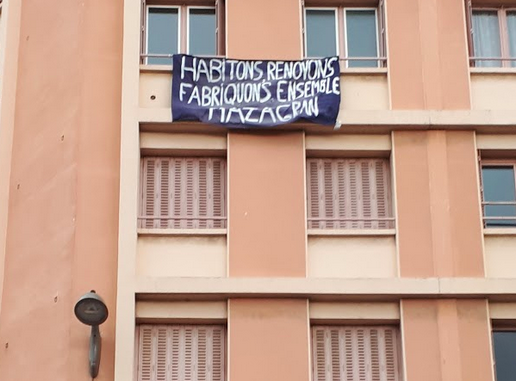 HABITONS, RENOVONS
FABRIQUONS ENSEMBLE
MAZAGRAN